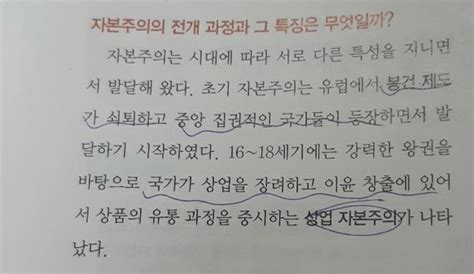 자본주의의 전개 과정과 그 특징은 무엇일까?
자본주의는 시대에 따라 서로 다른 특성을 지니면
서 발달해 왔다. 초기 자본주의는 유럽에서 봉건 제도
가 쇠퇴하고 중앙 집권적인 국가들이 등장하면서 발
달하기 시작하였다. 16~18세기에는 강력한 왕권을
바탕으로 국가가 상업을 장려하고 이윤 창출에 있어
서 상품의 유통 과정을 중시하는 상업 자본주의가 나타
났다.